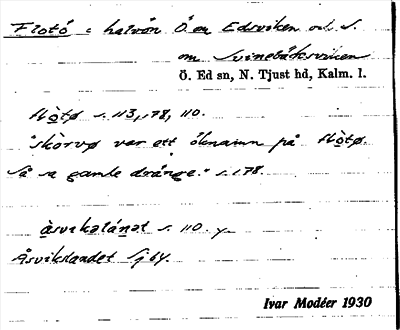 Flotö : halvön Ö. om Edsviken och S.
om Svinebäcksviken
Ö. Ed sn, N. Tjust hd, Kalm. l.
s. 113, 178, 110.
"skòrvø var ett öknamn på
Så sa gamle dränge." s. 178.
s. 110
Åsvikslandet
Ivar Modéer 1930